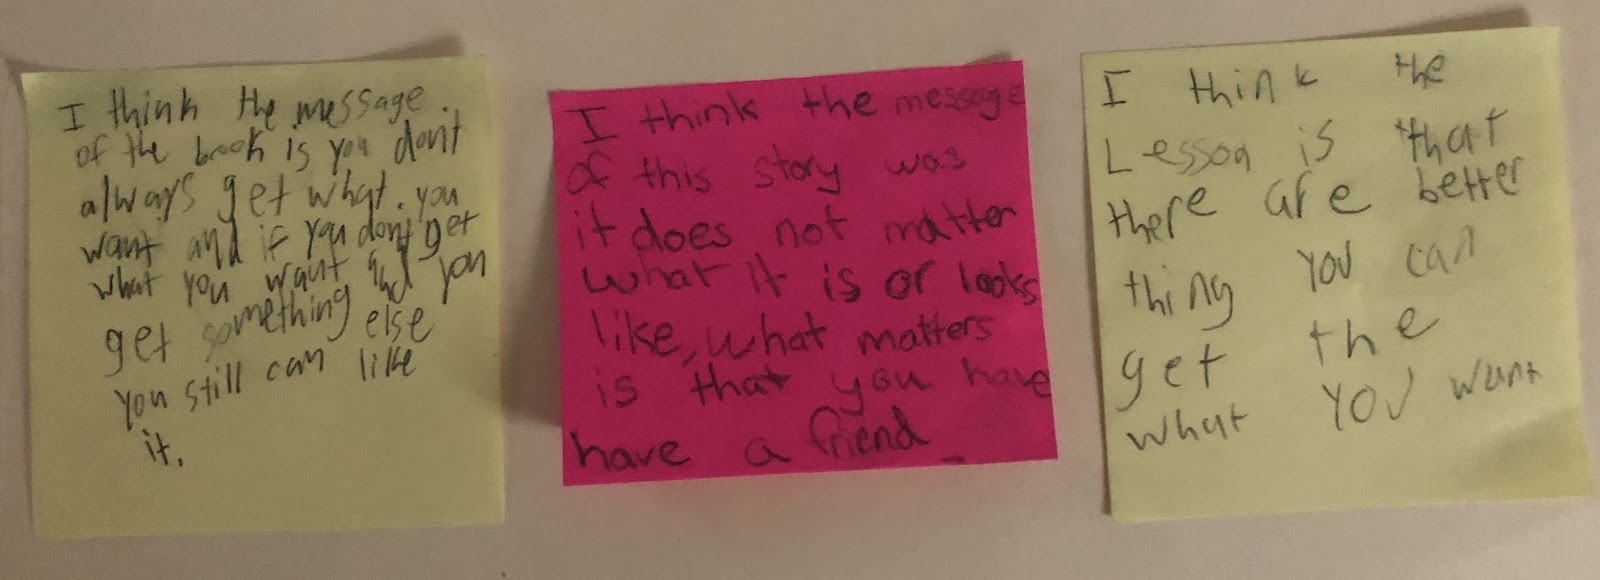 I think the message.
of the book is you don't
always get what. you
want and if you don't get
what you want and you
get something else
you still can like
it.
I think the message
of this story was
it does not matter
what it is or looks
like, what matters
is that you have
have a friend
I think the
Lesson is that
there are better
thing you can
get the
what you want